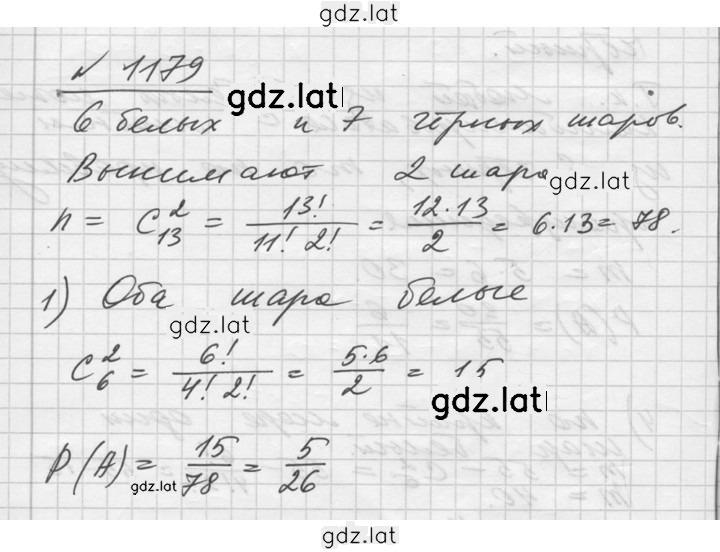 gdz.lat
№ 1179
gdz.lat
6 белых и 7 чёрных шаров.
Вынимают 2 шара
gdz.lat
n = C₁₃² = 13!/(11! 2!) = 12·13/2 = 6·13 = 78.
1) Оба шара белые
gdz.lat
C₆² = 6!/(4! 2!) = 5·6/2 = 15
gdz.lat
P(A) = 15/78 = 5/26
gdz.lat
gdz.lat